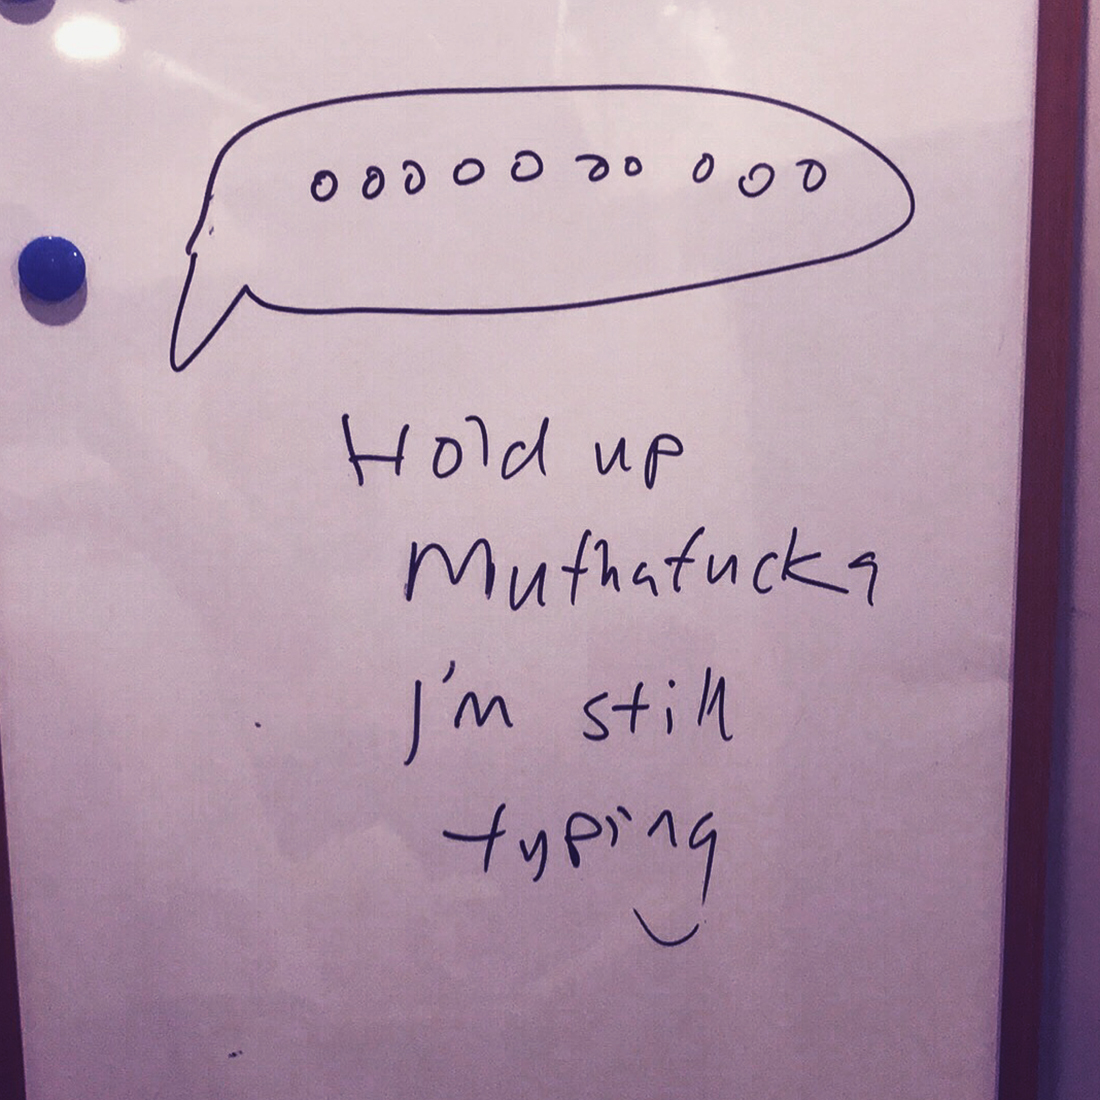 o o o o o o o o o o
Hold up
Muthafucka
I'm still
typing